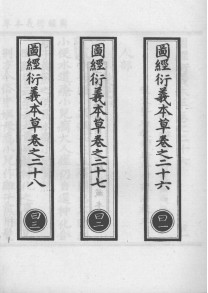 圖經衍義本草卷之二十六
曰一
圖經衍義本草卷之二十七
曰二
圖經衍義本草卷之二十八
曰三